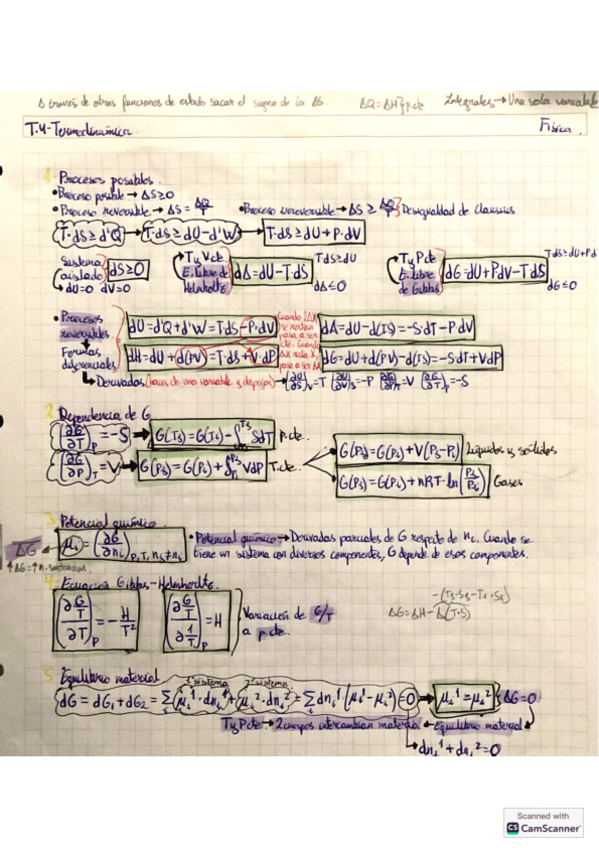 A través de otras funciones de estado sacar el signo de la ΔG ΔQ=ΔH}p.cte Integrales→Una sola variable
T.4-Termodinámica. Física.
1 Procesos posibles.
•Proceso posible → ΔS≥0
•Proceso reversible → ΔS = ΔQ/T •Proceso irreversible → ΔS ≥ ΔQ/T } Desigualdad de Clausius
T·dS≥d'Q → T·dS≥dU-d'W → T·dS≥dU+P·dV
Sistema aislado dS≥0
dU=0 dV=0
T y V cte E. libre de Helmholtz dA=dU-T·dS
TdS≥dU
dA≤0
T y P cte E. libre de Gibbs dG=dU+PdV-TdS
TdS≥dU+Pd
dG≤0
• Procesos reversibles
dU=d'Q+d'W=T·dS-P·dV
dA=dU-d(TS)=-S·dT-P·dV
Formas diferenciales
dH=dU+d(PV)=T·dS+V·dP
dG=dU+d(PV)-d(TS)=-S·dT+VdP
Derivadas (haces de una variable y despejas) → (∂U/∂S)ᵥ=T (∂U/∂V)ₛ=-P (∂G/∂P)_T=V (∂G/∂T)_P=-S
2 Dependencia de G
(∂G/∂T)_P=-S → G(T_f)=G(T_i)-∫SdT P.cte.
(∂G/∂P)_T=V → G(P_f)=G(P_i)+∫VdP T.cte.
G(P_f)=G(P_i)+V(P_f-P_i) Líquidos y sólidos
G(P_f)=G(P_i)+nRT·ln(P_f/P_i) Gases
3 Potencial químico
ΔG μ_i=(∂G/∂n_i)_P,T,n_j≠n_i • Potencial químico→Derivadas parciales de G respecto de n_i. Cuando se
tiene un sistema con diversos componentes, G depende de esos componentes.
↑ΔG=↑n.sustancias
4 Ecuación Gibbs-Helmholtz.
(∂(G/T)/∂T)_P=-H/T² (∂(G/T)/∂(1/T))_P=H Variación de G/T a p.cte.
-(T_f·S_f-T_i·S_i)
ΔG=ΔH-Δ(T·S)
5 Equilibrio material
1º sistema 2º sistema
dG = dG₁+dG₂ = Σ(μ_i¹·dn_i¹+μ_i²·dn_i²)=Σdn_i¹(μ_i¹-μ_i²)=0 → μ_i¹=μ_i² ΔG=0
T y P cte → 2 cuerpos intercambian materia ← Equilibrio material
dn_i¹+dn_i²=0
Scanned with
CS CamScanner